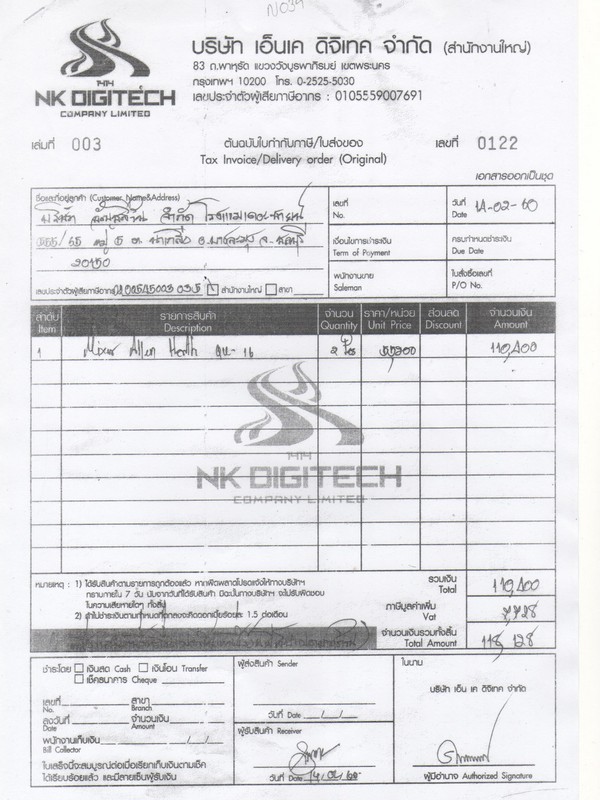 N039
1414
NK DIGITECH
COMPANY LIMITED
บริษัท เอ็นเค ดิจิเทค จำกัด (สำนักงานใหญ่)
83 ถ.พาหุรัด แขวงวังบูรพาภิรมย์ เขตพระนคร
กรุงเทพฯ 10200 โทร. 0-2525-5030
เลขประจำตัวผู้เสียภาษีอากร : 0105559007691
เล่มที่ 003
ต้นฉบับใบกำกับภาษี/ใบส่งของ
Tax Invoice/Delivery order (Original)
เลขที่ 0122
เอกสารออกเป็นชุด
ชื่อและที่อยู่ลูกค้า (Customer Name&Address)
บริษัท จำกัด
20150
เลขประจำตัวผู้เสียภาษีอากร
สำนักงานใหญ่ สาขา
เลขที่
No.
วันที่
Date 14-02-60
เงื่อนไขการชำระเงิน
Term of Payment
ครบกำหนดชำระเงิน
Due Date
พนักงานขาย
Saleman
ใบสั่งซื้อเลขที่
P/O No.
ลำดับ รายการสินค้า จำนวน ราคา/หน่วย ส่วนลด จำนวนเงิน
Item Description Quantity Unit Price Discount Amount
1 Mixer Allen Heath Qu-16 2 55,200 110,400
1414
NK DIGITECH
COMPANY LIMITED
หมายเหตุ : 1) ได้รับสินค้าตามรายการถูกต้องแล้ว หากผิดพลาดโปรดแจ้งให้ทางบริษัทฯ
ทราบภายใน 7 วัน นับจากวันที่ได้รับสินค้า มิฉะนั้นทางบริษัทฯ จะไม่รับผิดชอบ
ในความเสียหายใดๆ ทั้งสิ้น
2) ถ้าไม่ชำระเงินตามกำหนดที่ตกลงจะคิดดอกเบี้ยร้อยละ 1.5 ต่อเดือน
รวมเงิน
Total 110,400
ภาษีมูลค่าเพิ่ม
Vat 7,728
จำนวนเงินรวมทั้งสิ้น
Total Amount 118,128
ชำระโดย เงินสด Cash เงินโอน Transfer
เช็คธนาคาร Cheque
เลขที่ สาขา
No. Branch
ลงวันที่ จำนวนเงิน
Date Amount
พนักงานเก็บเงิน
Bill Collector
ใบเสร็จนี้จะสมบูรณ์ต่อเมื่อเรียกเก็บเงินตามเช็ค
ได้เรียบร้อยแล้ว และมีลายเซ็นผู้รับเงิน
ผู้ส่งสินค้า Sender
วันที่ Date
ผู้รับสินค้า Receiver
วันที่ Date
ในนาม
บริษัท เอ็น เค ดิจิเทค จำกัด
ผู้มีอำนาจ Authorized Signature